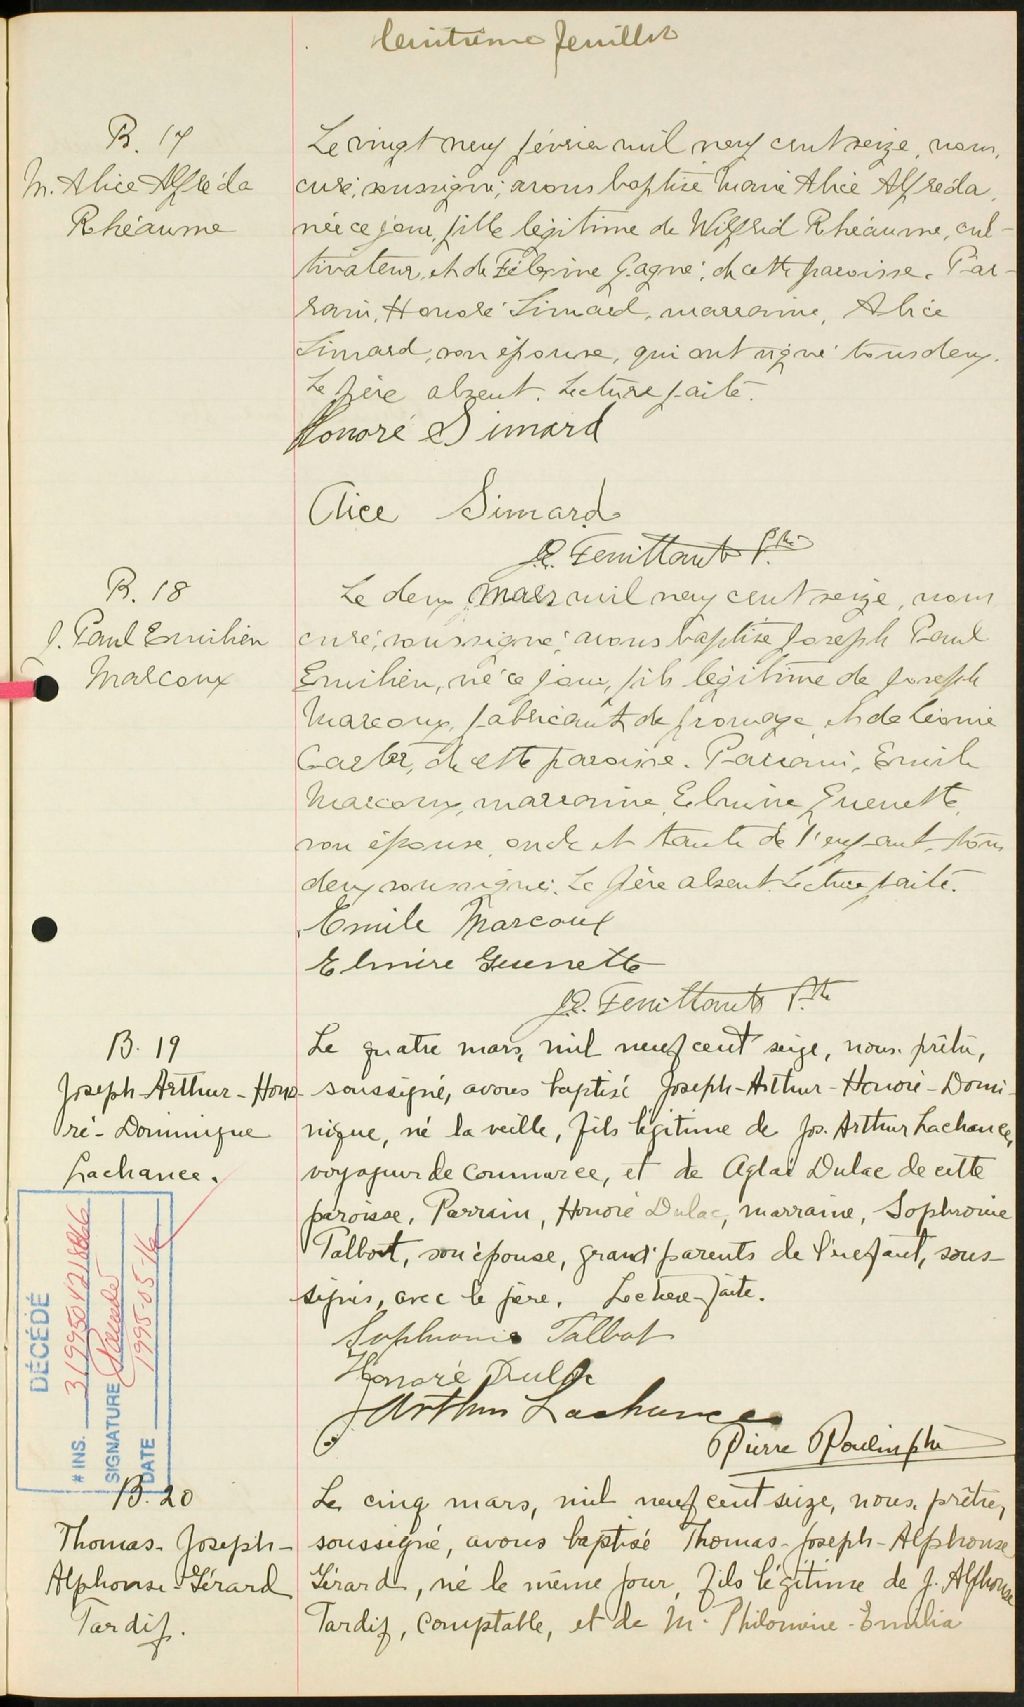 huitième feuillet
B. 17
M. Alice Alfréda
Rhéaume
Le vingt neuf février mil neuf cent seize, nous,
curé, soussigné, avons baptisé Marie Alice Alfréda,
née ce jour, fille légitime de Wilfrid Rhéaume, cul-
tivateur, et de Félexine Gagné, de cette paroisse. Par-
rain, Honoré Simard, marraine, Alice
Simard, son épouse, qui ont signé tous deux.
Le père absent. Lecture faite.
Honoré Simard
Alice Simard
J.E. Feuiltault Ptre
B. 18
J. Paul Emilien
Marcoux
Le deux mars mil neuf cent seize, nous
curé, soussigné, avons baptisé Joseph Paul
Emilien, né ce jour, fils légitime de Joseph
Marcoux, fabricant de fromage, et de Léonie
de cette paroisse. Parrain, Emile
Marcoux, marraine, Elmire Guenette,
son épouse, oncle et tante de l'enfant, tous
deux soussignés. Le père absent. Lecture faite.
Emile Marcoux
Elmire Guenette
J.E. Feuiltault Ptre
B. 19
Joseph-Arthur-Hono-
ré-Dominique
Lachance.
Le quatre mars, mil neuf cent seize, nous, prêtre,
soussigné, avons baptisé Joseph-Arthur-Honoré-Domi-
nique, né la veille, fils légitime de Jos. Arthur Lachance,
voyageur de commerce, et de Aglaé Dulac de cette
paroisse. Parrain, Honoré Dulac, marraine, Sophronie
Talbot, son épouse, grand'parents de l'enfant, sous-
signés, avec le père. Lecture faite.
Sophronie Talbot
Honoré Dulac
J Arthur Lachance
Pierre Poulin ptre
DÉCÉDÉ
# INS. 319950421886
SIGNATURE
DATE 1995-05-16
B. 20
Thomas-Joseph-
Alphonse-Gérard
Tardif.
Le cinq mars, mil neuf cent seize, nous, prêtre,
soussigné, avons baptisé Thomas-Joseph-Alphonse
Gérard, né le même jour, fils légitime de J. Alphonse
Tardif, comptable, et de M. Philomène-Emilia